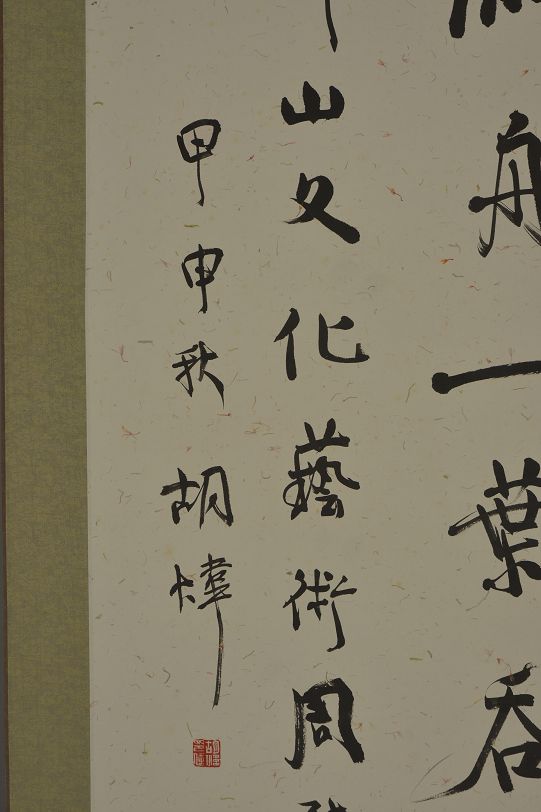 舟一葉吞
山文化藝術周
甲申秋胡煒